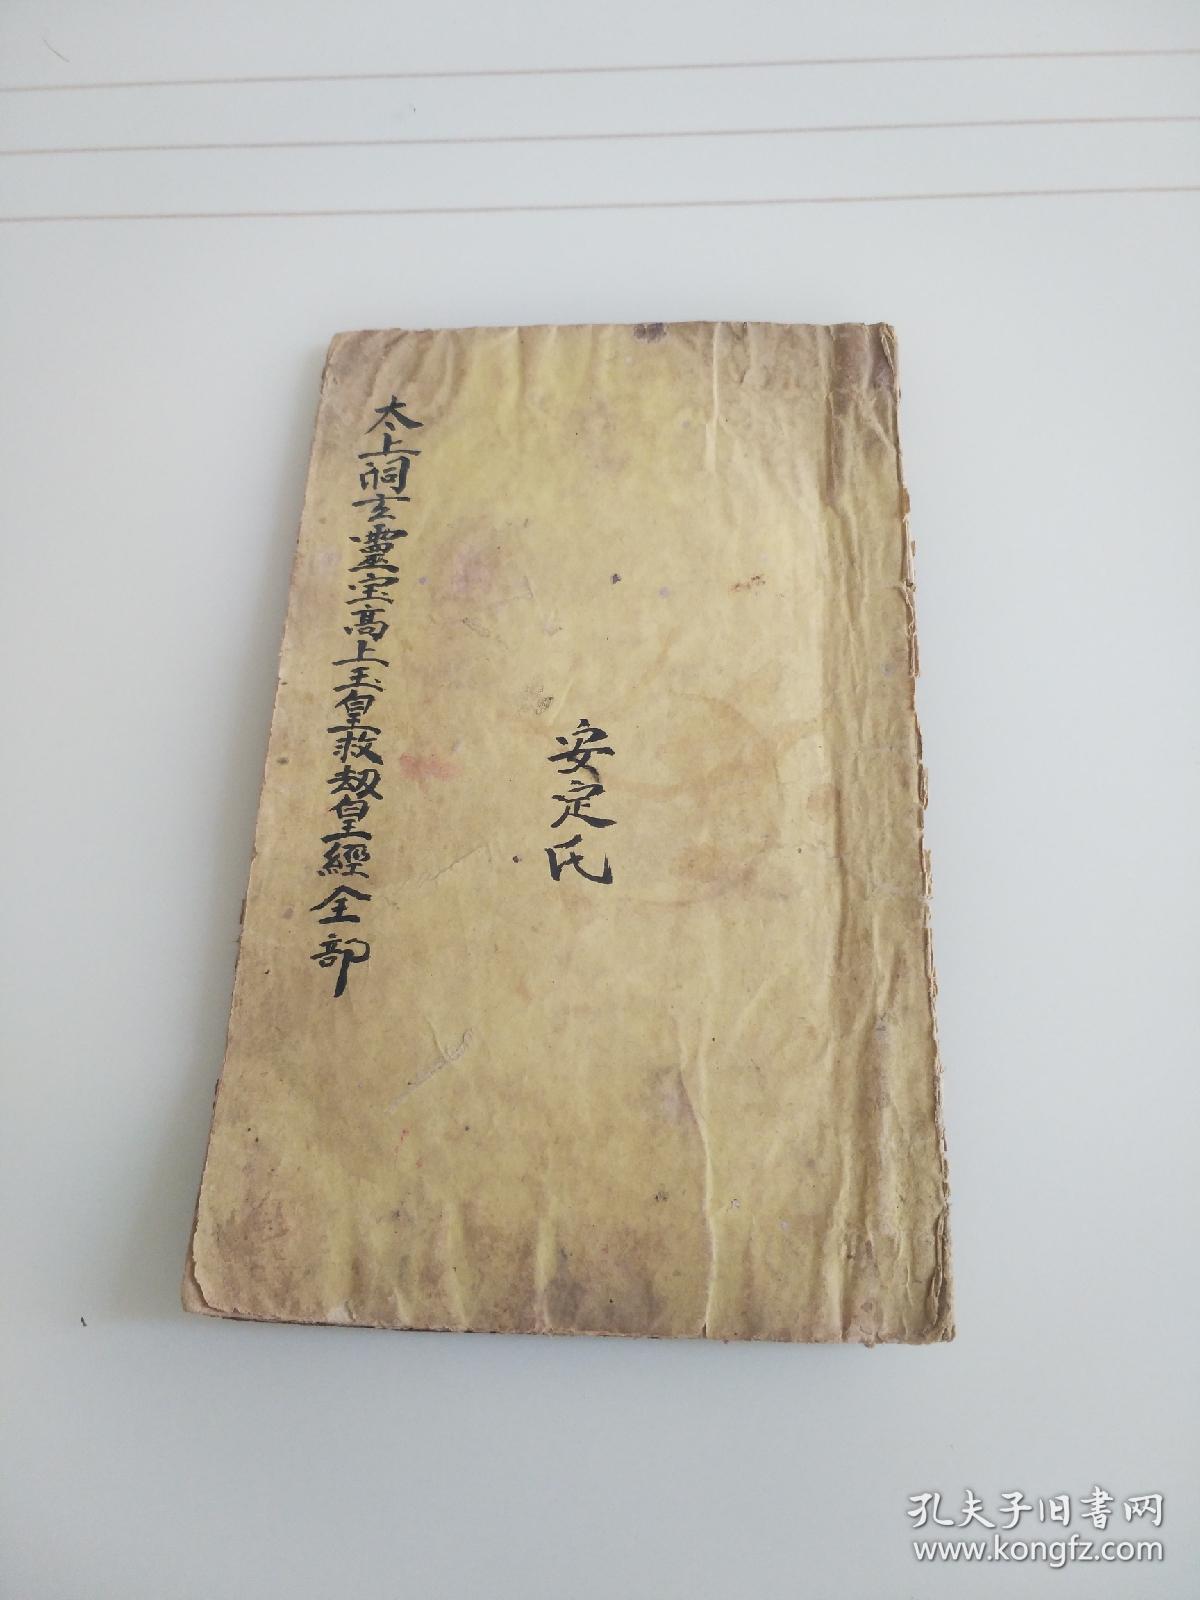 太上洞玄靈宝高上玉皇救刼皇經全部
安定氏
孔夫子旧书网
www.kongfz.com